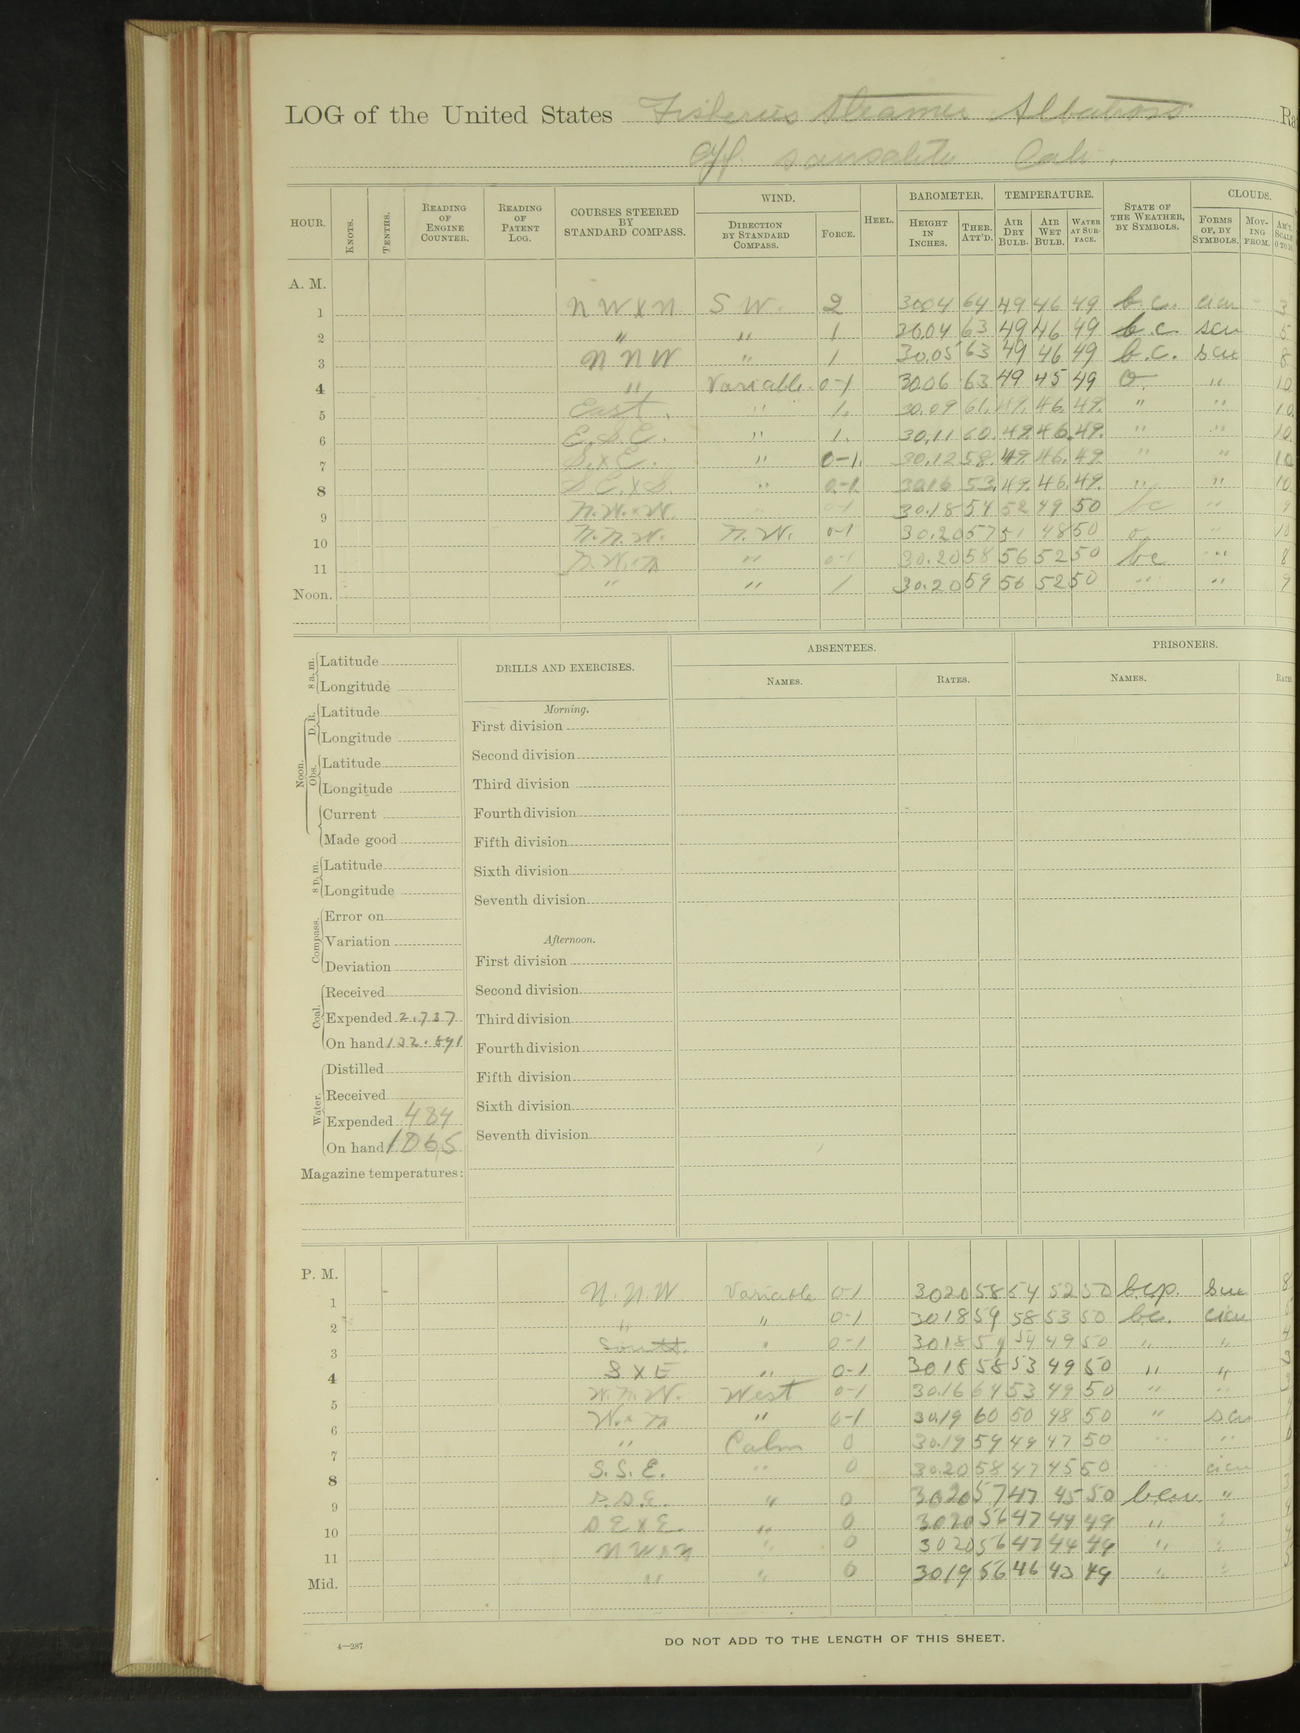 LOG of the United States Fisheries Steamer Albatross Ra
Off Sausalito Cali.
HOUR. KNOTS. TENTHS. READING OF ENGINE COUNTER. READING OF PATENT LOG. COURSES STEERED BY STANDARD COMPASS. WIND. DIRECTION BY STANDARD COMPASS. FORCE. HEEL. BAROMETER. HEIGHT IN INCHES. THER. ATT'D. TEMPERATURE. AIR DRY BULB. AIR WET BULB. WATER AT SURFACE. STATE OF THE WEATHER, BY SYMBOLS. CLOUDS. FORMS OF, BY SYMBOLS. MOVING FROM. AM'T. SCALE 0 TO 10
A. M.
1 N W x N. S W. 2 30.04 64 49 46 49 b.c. cicu 3
2 " " 1 30.04 63 49 46 49 b.c. scu 5
3 N N W " 1 30.05 63 49 46 49 b.c. scu 8
4 " Variable 0-1 30.06 63 49 45 49 O. " 10
5 East. " 1. 30.09 61. 49. 46. 49. " " 10.
6 E.S.E. " 1. 30.11 60. 49. 46. 49. " " 10
7 S.x E. " 0-1. 30.12 58. 49. 46. 49 " " 10
8 S E. x S. " 0-1 30.16 53. 49. 46. 49. " " 10
9 N.W.xW. " 0-1 30.18 54 52 49 50 bc " 9
10 N.N.W. N.W. 0-1 30.20 57 51 48 50 o. " 10
11 N.W.xN " 0-1 30.20 58 56 52 50 bc " 8
Noon. " " 1 30.20 59 56 52 50 " " 9
8 a. m. Latitude
Longitude
Noon. D. R. Latitude
Longitude
Obs. Latitude
Longitude
Current
Made good
8 p. m. Latitude
Longitude
Compass. Error on
Variation
Deviation
Coal. Received
Expended 2.737
On hand 132.891
Water. Distilled
Received
Expended 484
On hand 1065
Magazine temperatures:
DRILLS AND EXERCISES.
Morning.
First division
Second division
Third division
Fourth division
Fifth division
Sixth division
Seventh division
Afternoon.
First division
Second division
Third division
Fourth division
Fifth division
Sixth division
Seventh division
ABSENTEES.
NAMES. RATES.
PRISONERS.
NAMES. RATES
P. M.
1 N.N.W Variable 0-1 30 20 58 54 52 50 bcp. scu 8
2 " " 0-1 30 18 59 58 53 50 bc. cicu
3 South. " 0-1 30 18 59 54 49 50 " " 4
4 S X E " 0-1 30 18 58 53 49 50 " " 3
5 W.N.W. West 0-1 30.16 64 53 49 50 " "
6 W.x N " 0-1 30.19 60 50 48 50 " scu
7 " Calm 0 30.19 59 49 47 50 " "
8 S.S.E. " 0 30.20 58 47 45 50 " cicu
9 S.S.E. " 0 30 20 57 47 45 50 bcw. " 3
10 S E x E. " 0 30 20 56 47 44 49 " "
11 N W x N " 0 30 20 56 47 44 49 " "
Mid. " " 0 30 19 56 46 43 49 " "
4—287
DO NOT ADD TO THE LENGTH OF THIS SHEET.